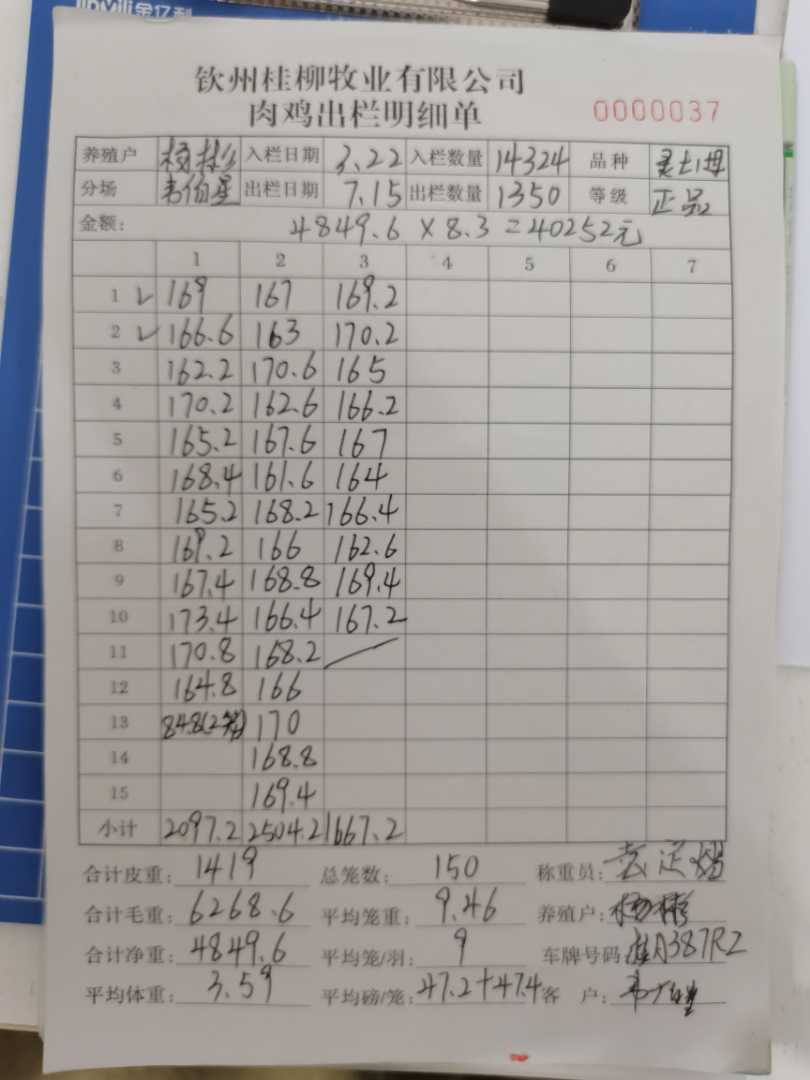 金亿利
钦州桂柳牧业有限公司
肉鸡出栏明细单 0000037
养殖户 杨彬 入栏日期 3.22 入栏数量 14324 品种 灵土1母
分场 韦伯星 出栏日期 7.15 出栏数量 1350 等级 正品
金额: 4849.6 × 8.3 = 40252元
1 2 3 4 5 6 7
1 ✓ 169 167 169.2
2 ✓ 166.6 163 170.2
3 162.2 170.6 165
4 170.2 162.6 166.2
5 165.2 167.6 167
6 168.4 161.6 164
7 165.2 168.2 166.4
8 169.2 166 162.6
9 167.4 168.8 169.4
10 173.4 166.4 167.2
11 170.8 168.2
12 164.8 166
13 84.8(2笼) 170
14 168.8
15 169.4
小计 2097.2 2504.2 1667.2
合计皮重: 1419 总笼数: 150 称重员:
合计毛重: 6268.6 平均笼重: 9.46 养殖户: 杨彬
合计净重: 4849.6 平均笼/羽: 9 车牌号码: 桂A387R2
平均体重: 3.59 平均磅/笼: 47.2+47.4 客 户: